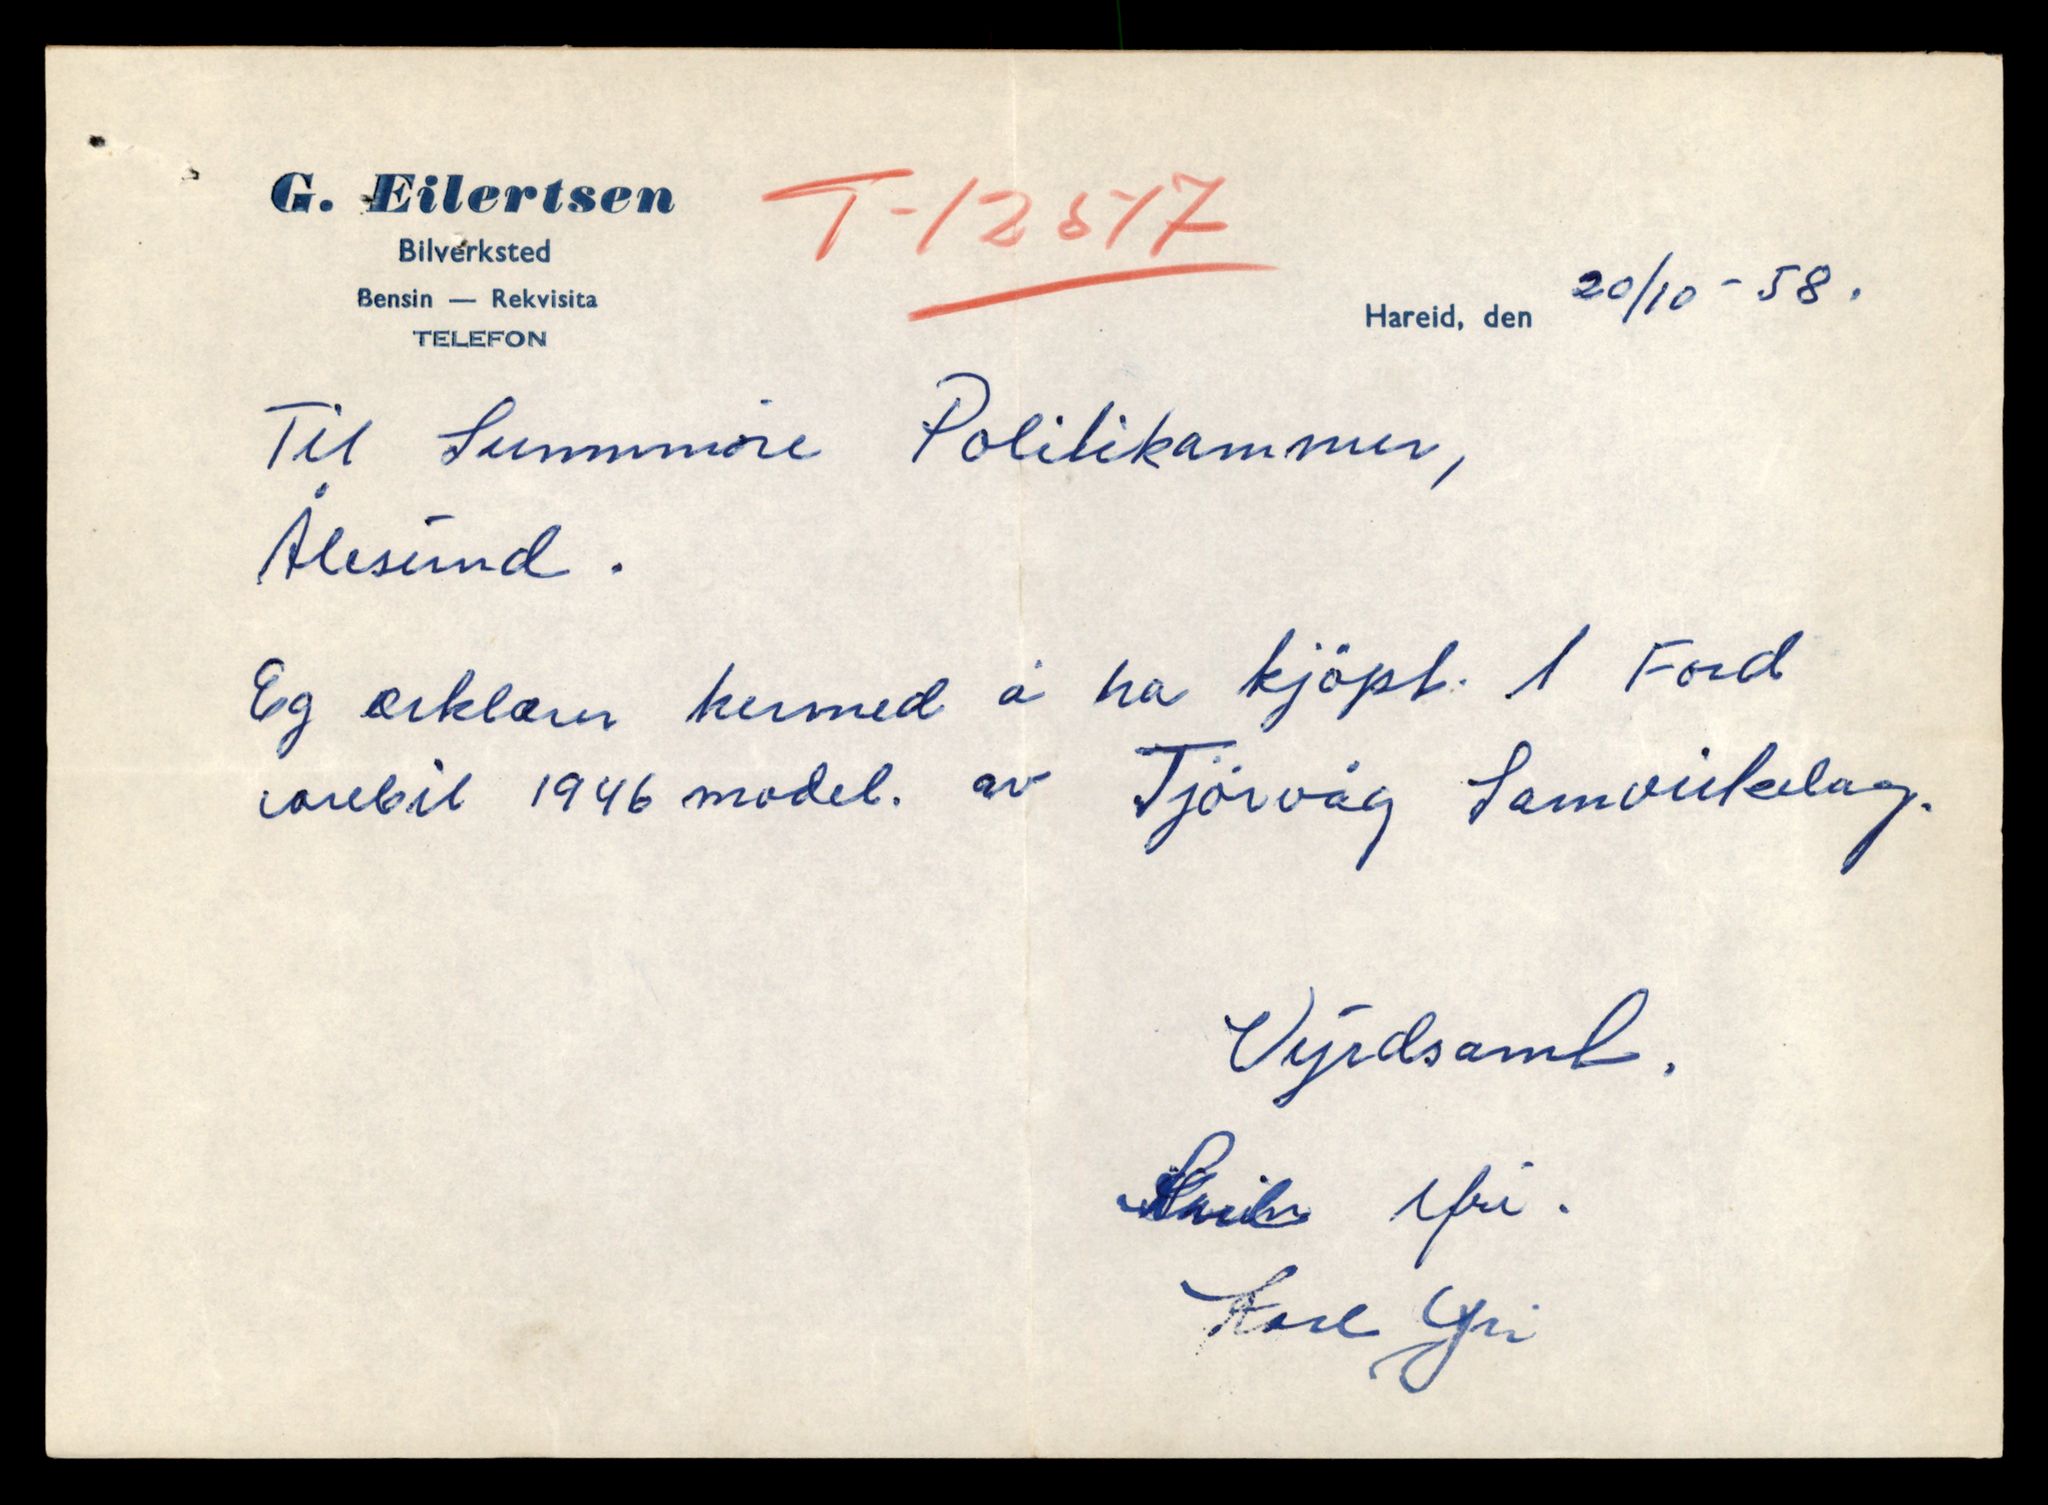 G. Eilertsen
T-12517
Bilverksted
Bensin — Rekvisita
TELEFON
Hareid, den 20/10-58.
Til Sunnmöre Politikammer,
Ålesund.
Eg ærklærer hermed å ha kjöpt. 1 Ford
varebil 1946 model. av Tjörvåg Samvirkelag.
Vyrdsamt.
Yri.
Karl Yri